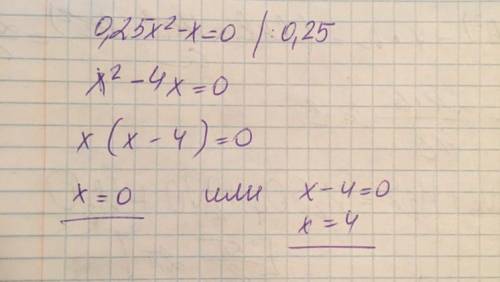 0,25x²-x=0 /:0,25
x²-4x=0
x(x-4)=0
x=0 или x-4=0
x=4